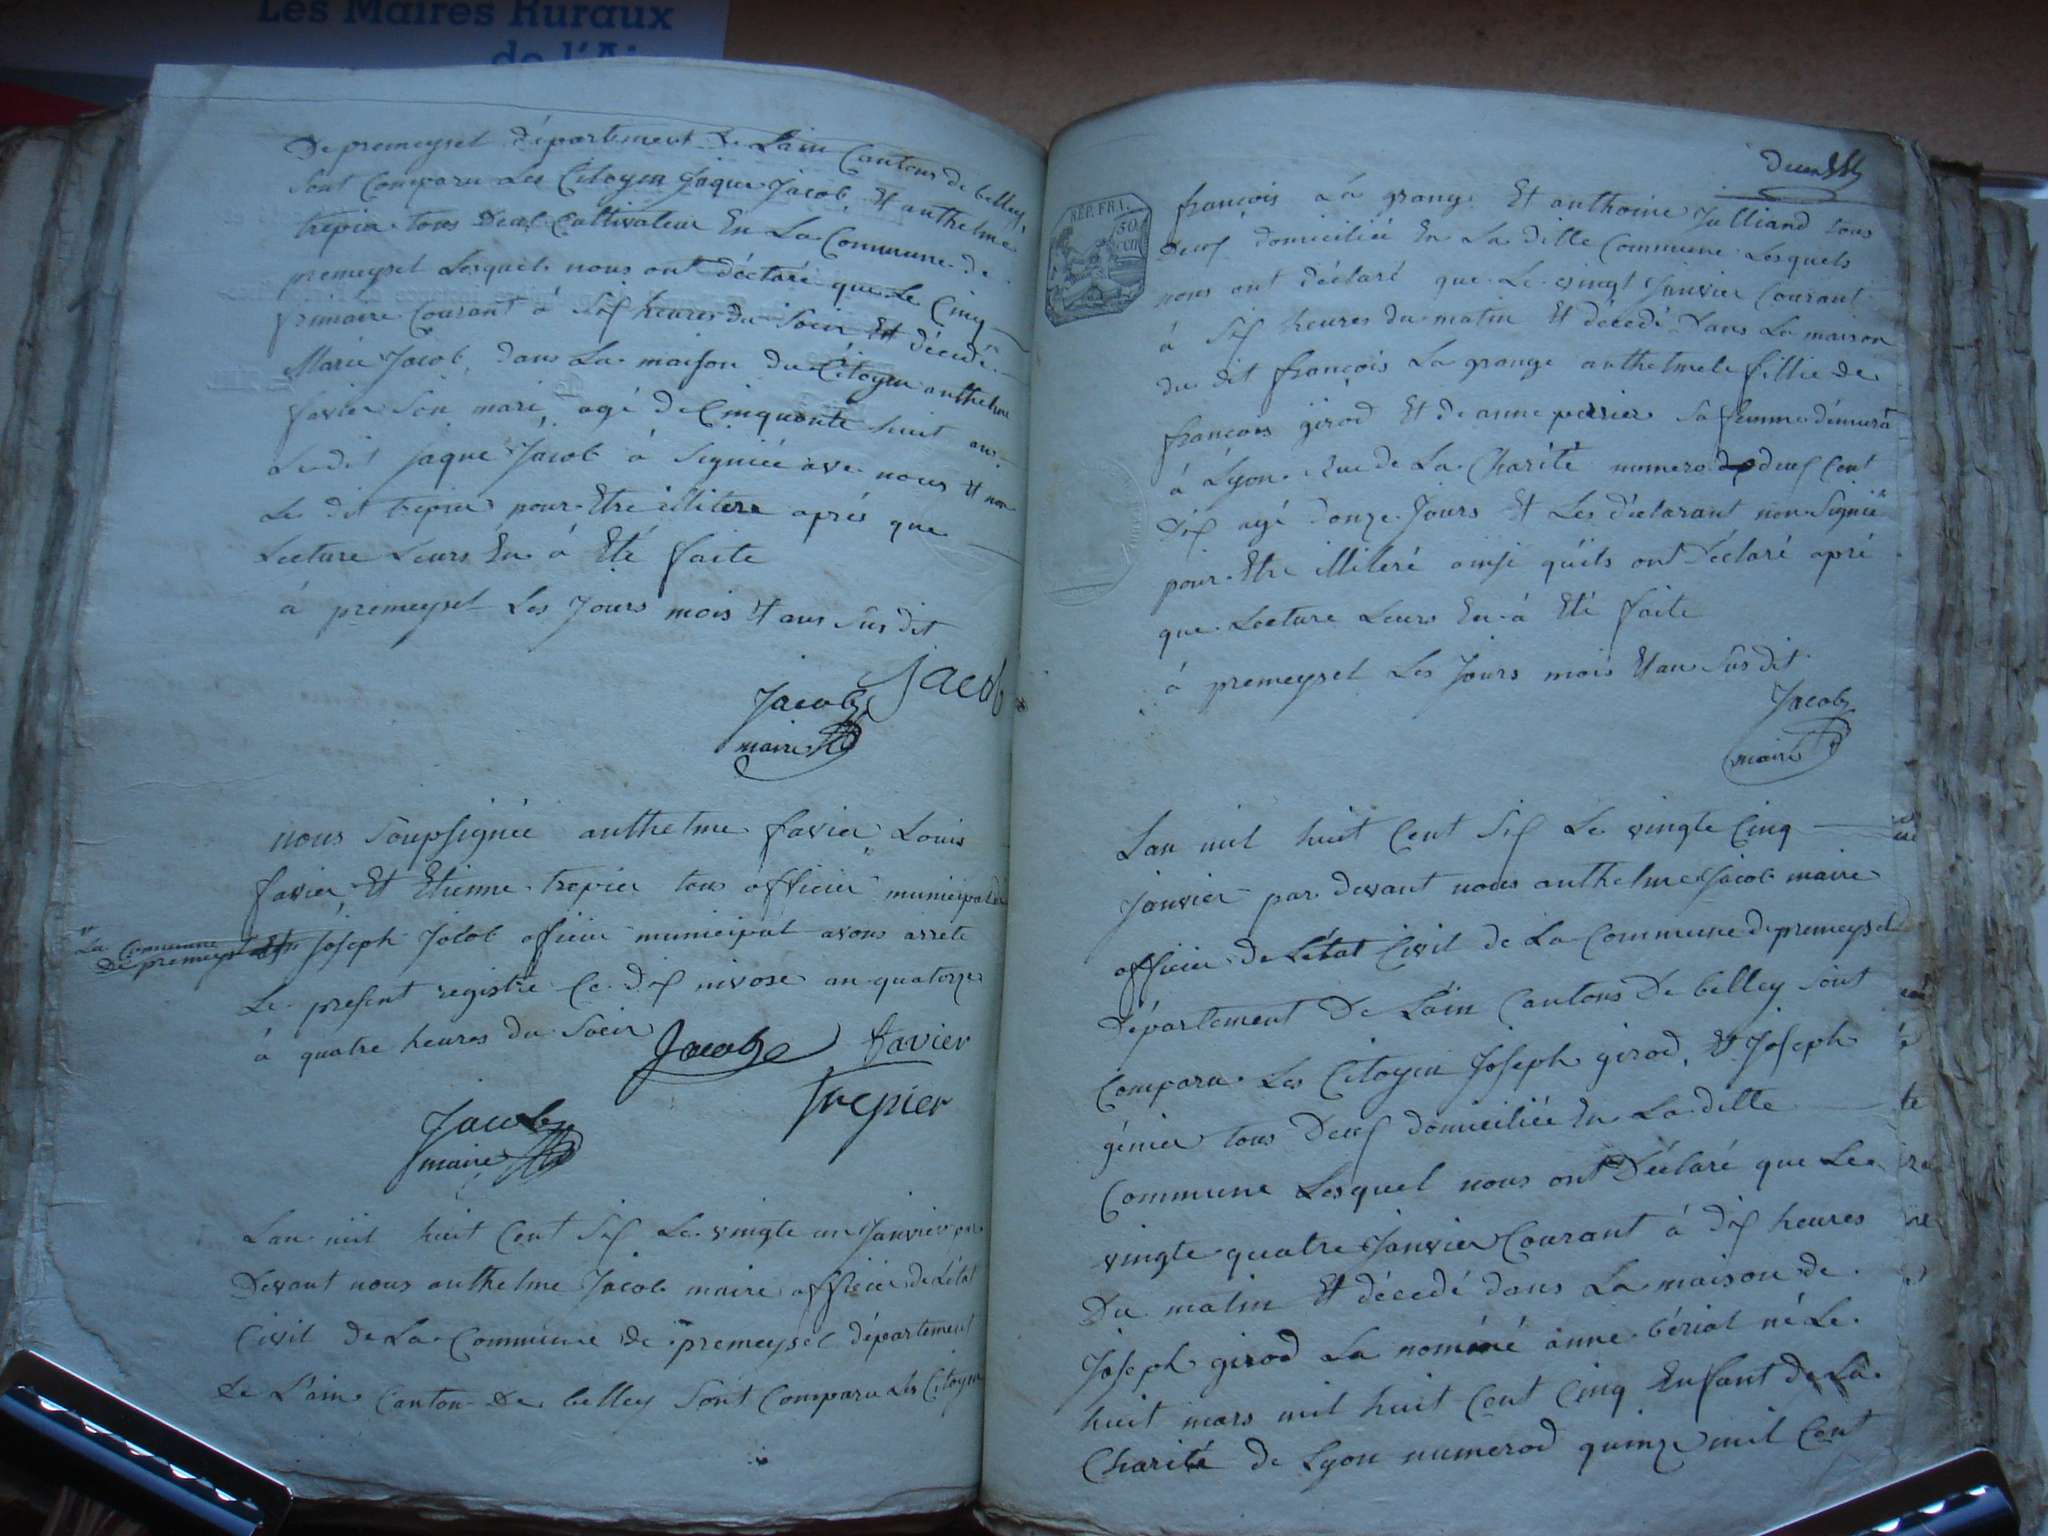 Les Maires Ruraux
de l'Ai
De premeysel département de Lain Cantons de belley
sont Comparu Les Citoyen Jaque Jacob, Et anthelme
trepier tous Deux Cultivateur En La Commune de
premeysel Lesquels nous ont déclaré que Le Cinq
frimaire Courant à Six heures du Soir Et décedé
Marie Jacob, dans La maison du Citoyen anthelme
favier Son mari, agé de Cinquante huit ans
Ledit jaque Jacob à Signiée ave nous et non
Le dit trepier pour Etre illitere après que
Lecture Leurs En à Eté faite
à premeysel Les Jours mois Et ans Sus dit
Jacob
Jacob
maire
nous Soupsignée anthelme favier, Louis
favier, Et Etienne trepier tous officier municipal de
La Commune
De premeysel
Joseph Jacob officier municipal avons arrete
Le present registre Ce dix nivose an quatorze
à quatre heures du Soeir
Jacob favier
trepier
Jacob
maire
Lan mil huit Cent Six Le vingte un Janvier par
Devant nous anthelme Jacob maire officier de Létat
Civil de La Commune de premeysel département
de L'ain Canton De belley Sont Comparu Les Citoyen
REP. FRA.
50
cen
françois La grange Et anthoine Julliand tous
Deux domiciliée En La ditte Commune Lesquels
nous ont déclaré que Le vingt Janvier Courant
à Six heures du matin Et décedé Dans La maison
du dit françois La grange anthelmele fillie de
françois girod Et de anne perrier Sa femme démurà
à Lyon rue de La Charité numero deux Cent
Dix agé donze Jours Et Les déclarant non Signié
pour Etre illiteré ainsi quils ont Déclaré apré
que Lecture Leurs En à Eté faite
à premeysel Les Jours mois Et an Sus dit
Jacob
maire
Lan mil huit Cent Six Le vingte Cinq
Janvier par devant nous anthelme Jacob maire
officier de Létat Civil de La Commune de premeysel
département De Lain Cantons De belley Sont
Comparu Les Citoyen Joseph girod, Et Joseph
génier tous Deux domiciliée En La ditte
Commune Lesquel nous ont Déclaré que Le
vingte quatre Janvier Courant à dix heures
Du matin Et décedé dans La maison de
Joseph girod La nomé anne bérial né Le
huit mars mil huit Cent Cinq Enfant de La
Charité de Lyon numerod quinze mil Cent